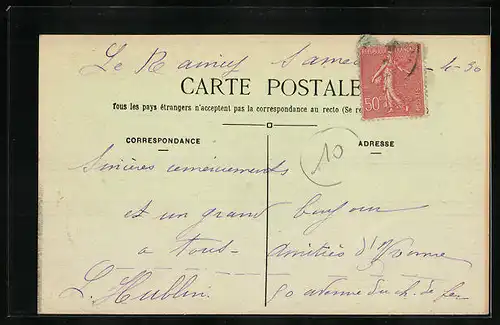 Le Raincy Samedi 4-30
CARTE POSTALE
Tous les pays étrangers n'acceptent pas la correspondance au recto (Se re
CORRESPONDANCE
ADRESSE
10
50c
Sincères remerciements
et un grand bonjour
a tous amitiés d'Yvonne
L. Hublin. 90 avenue du ch. de fer